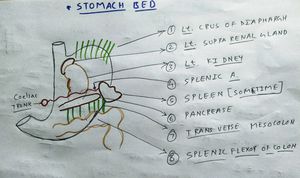 • STOMACH BED
① Lt. CRUS OF DIAPHARGH
② Lt. SUPRA RENAL GLAND
③ Lt. KIDNEY
④ SPLENIC A.
⑤ SPLEEN [SOMETIME]
⑥ PANCREASE
⑦ TRANSVERSE MESOCOLON
⑧ SPLENIC FLEXOR OF COLON
Coeliac
TRUNK